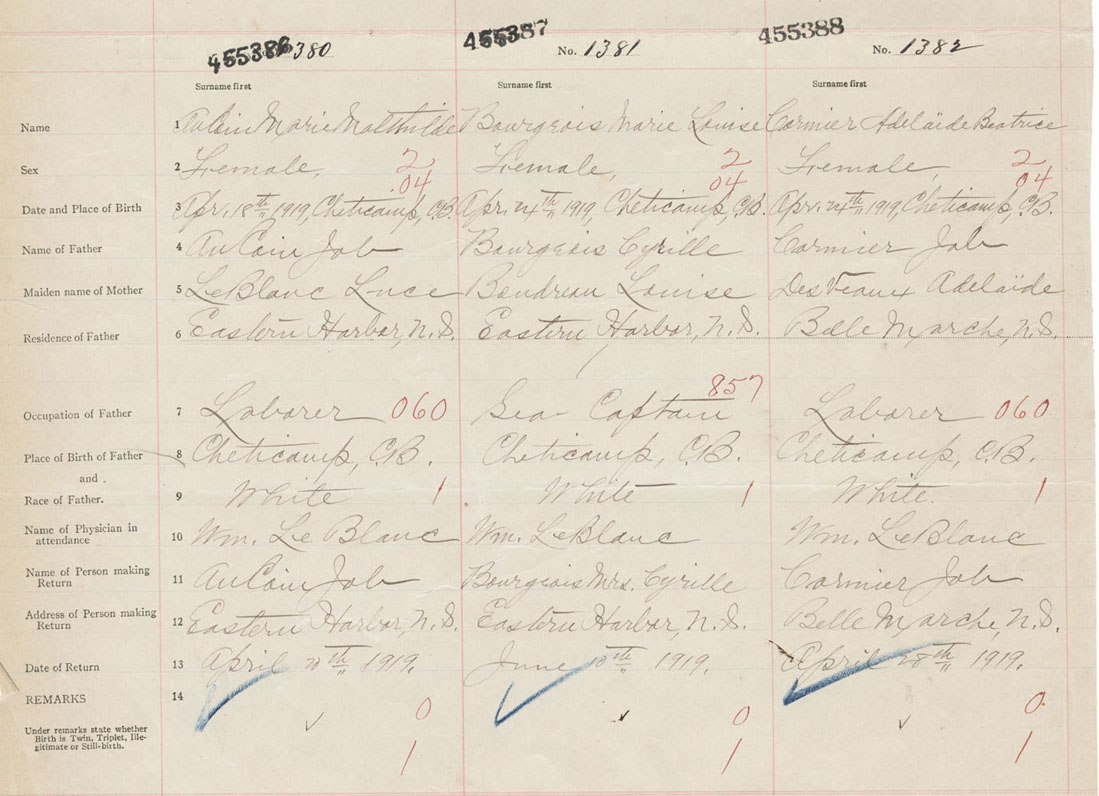 455386 1380 455387 No. 1381 455388 No. 1382
Surname first Surname first Surname first
Name 1 AuCoin Marie Mathilde Bourgeois Marie Louise Cormier Adelaïde Beatrice
Sex 2 Female, 2 Female, 2 Female, 2
04 04 04
Date and Place of Birth 3 Apr. 18th 1919, Cheticamp, C.B. Apr. 24th 1919, Cheticamp, C.B. Apr. 24th 1919, Cheticamp, C.B.
Name of Father 4 AuCoin Job Bourgeois Cyrille Cormier Job
Maiden name of Mother 5 LeBlanc Luce Boudreau Louise DesVeaux Adelaïde
Residence of Father 6 Eastern Harbor, N.S. Eastern Harbor, N.S. Belle Marche, N.S.
857
Occupation of Father 7 Laborer 060 Sea Captain Laborer 060
Place of Birth of Father 8 Cheticamp, C.B. Cheticamp, C.B. Cheticamp, C.B.
and
Race of Father. 9 White 1 White 1 White 1
Name of Physician in
attendance 10 Wm. Le Blanc Wm. LeBlanc Wm. LeBlanc
Name of Person making
Return 11 AuCoin Job Bourgeois Mrs. Cyrille Cormier Job
Address of Person making
Return 12 Eastern Harbor, N.S. Eastern Harbor, N.S. Belle Marche, N.S.
Date of Return 13 April th 1919. June th 1919. April 28th 1919.
REMARKS 14
0 0 0
Under remarks state whether
Birth is Twin, Triplet, Ille-
gitimate or Still-birth.
1 1 1